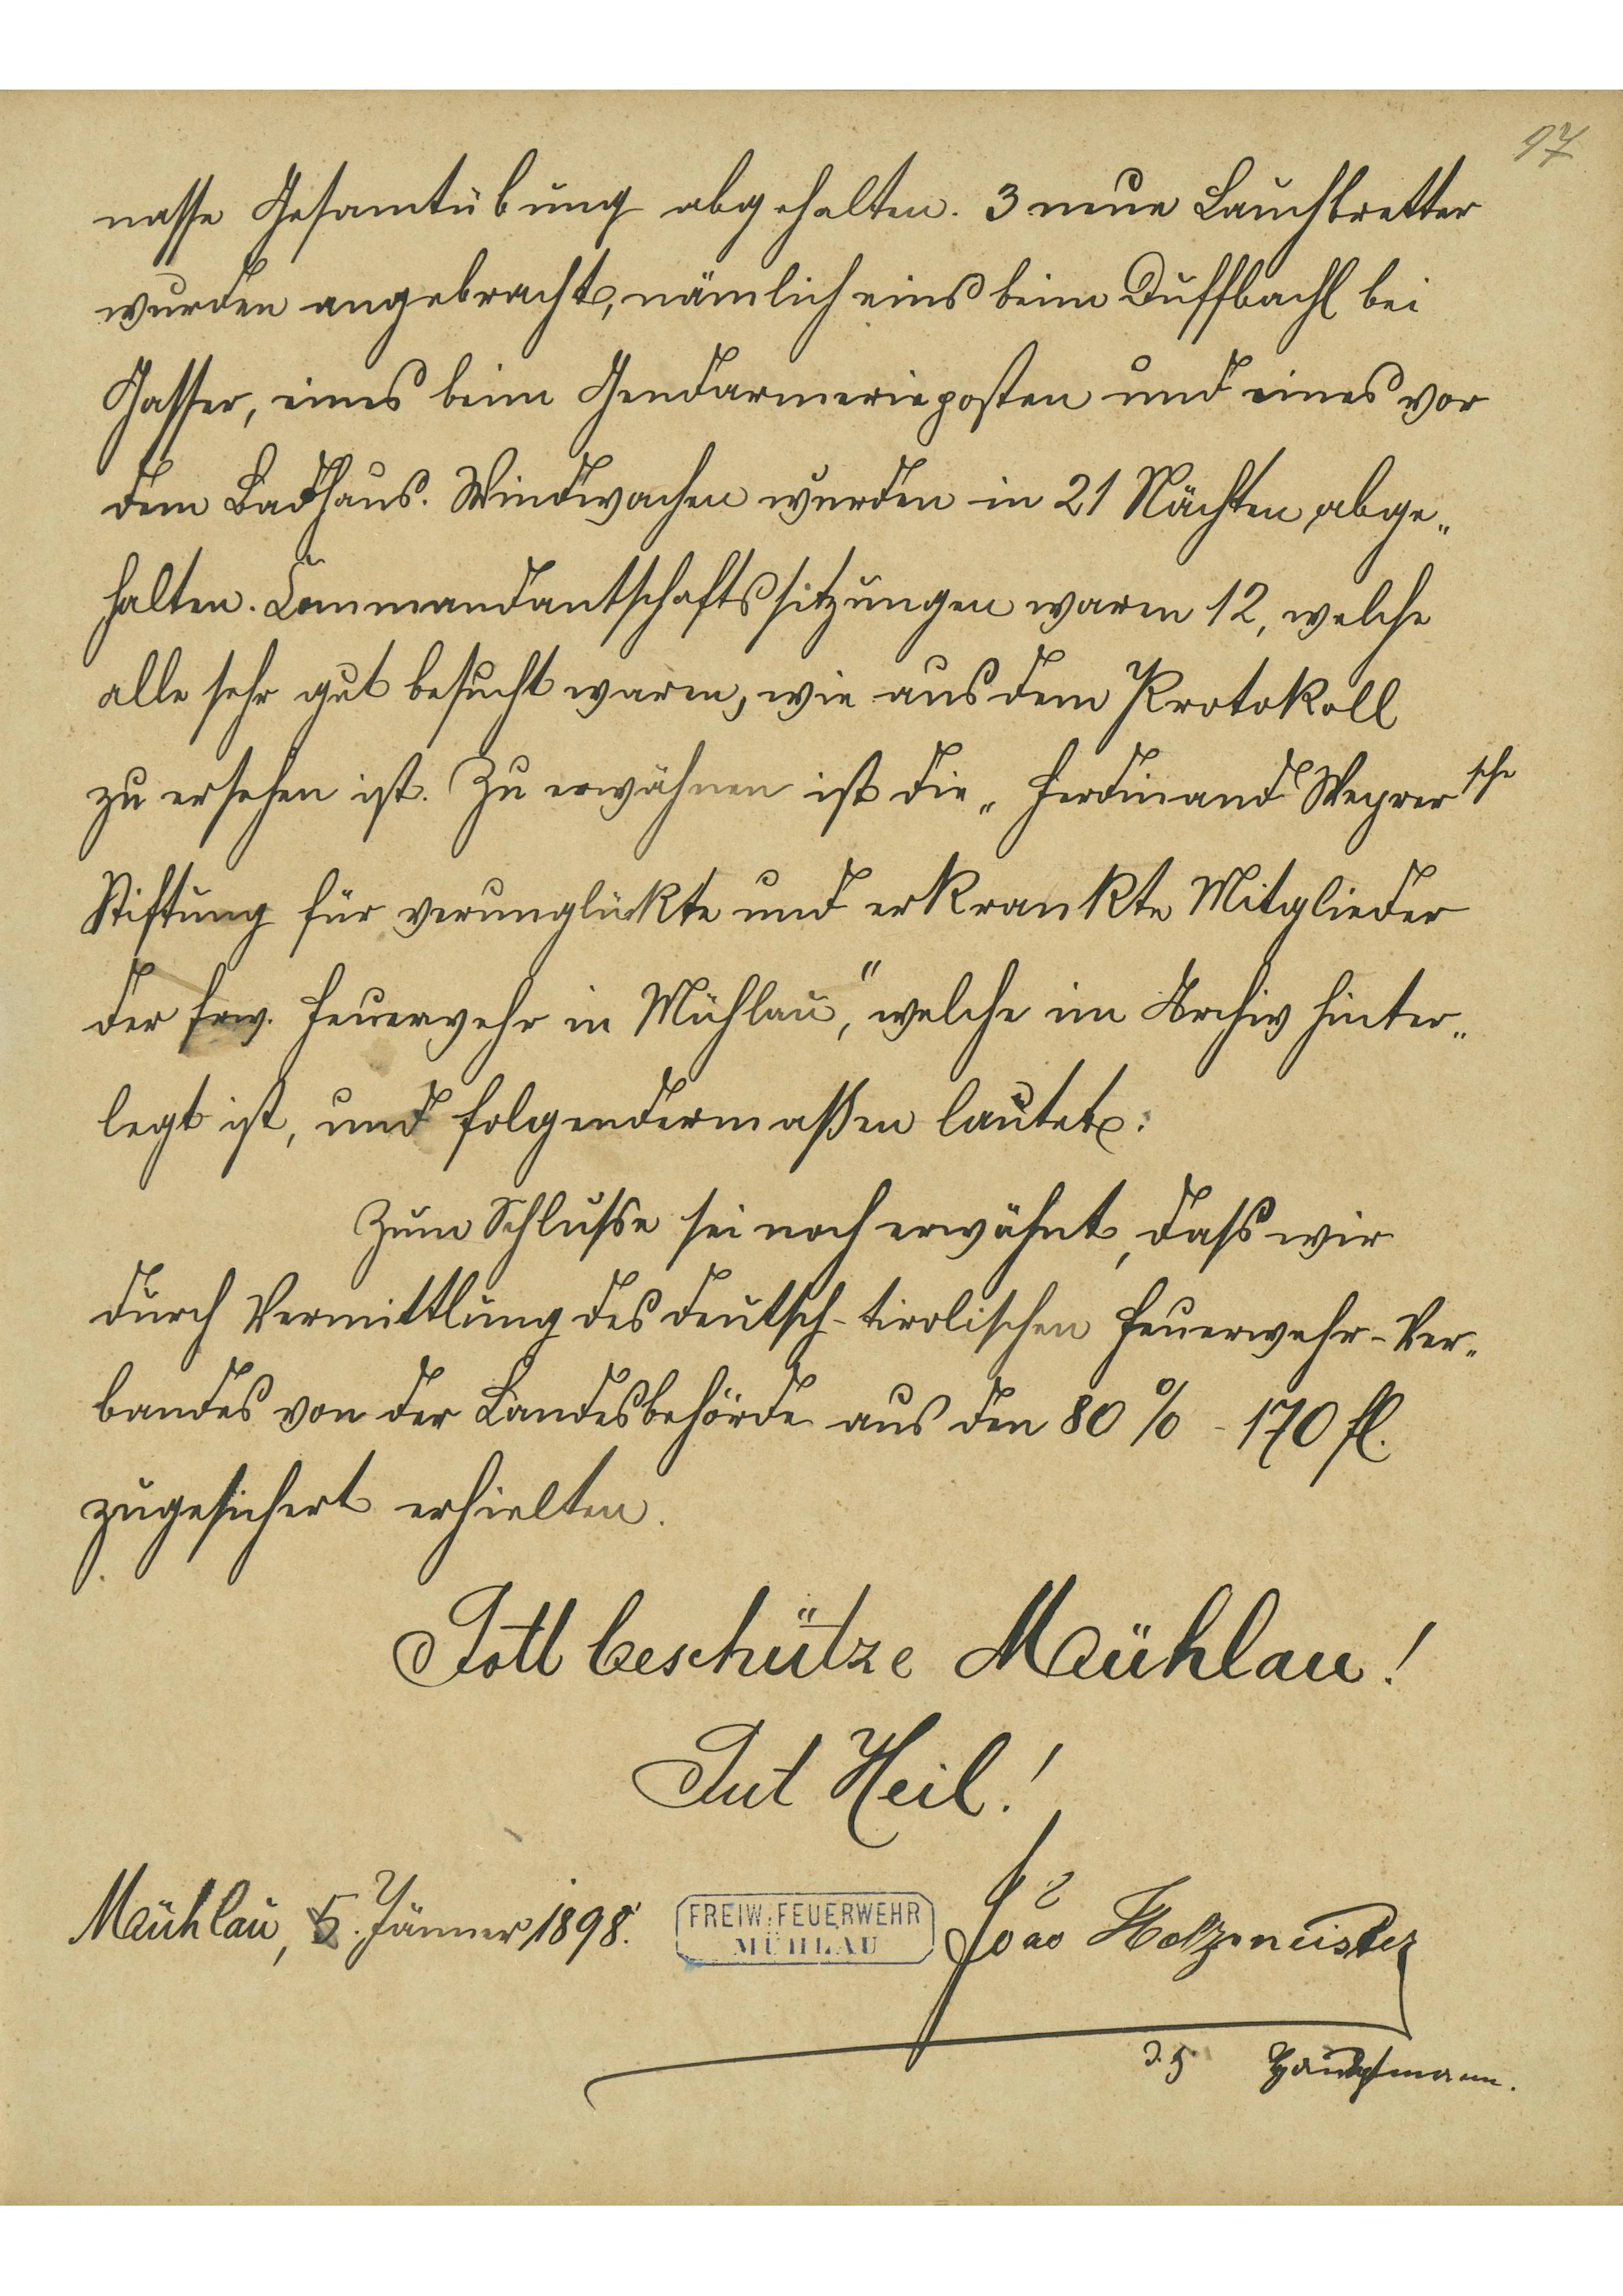 97
nasse Gesamtübung abgehalten. 3 neue Bauchbretter
wurden angebracht, nämlich eins beim Duffbachl bei
Gasser, eines beim Gendarmerieposten und eines vor
dem Badhaus. Windwachen wurden in 21 Nächten abge„
halten. Commandantschaftssitzungen waren 12, welche
alle sehr gut besucht waren, wie aus dem Protokoll
zu ersehen ist. Zu erwähnen ist die „Ferdinand Weyrer sche
Stiftung für verunglückte und erkrankte Mitglieder
der frw. Feuerwehr in Mühlau," welche im Archiv hinter„
legt ist, und folgendermaßen lautet:
Zum Schlusse sei noch erwähnt, dass wir
durch Vermittlung des deutsch-tirolischen Feuerwehr-Ver„
bandes von der Landesbehörde aus den 80 % - 170 fl.
zugesichert erhielten.
Gott beschütze Mühlau!
Gut Heil!
Mühlau, 5. Jänner 1898.
FREIW. FEUERWEHR
MÜHLAU
Holzmeister
d. z. Hauptmann.